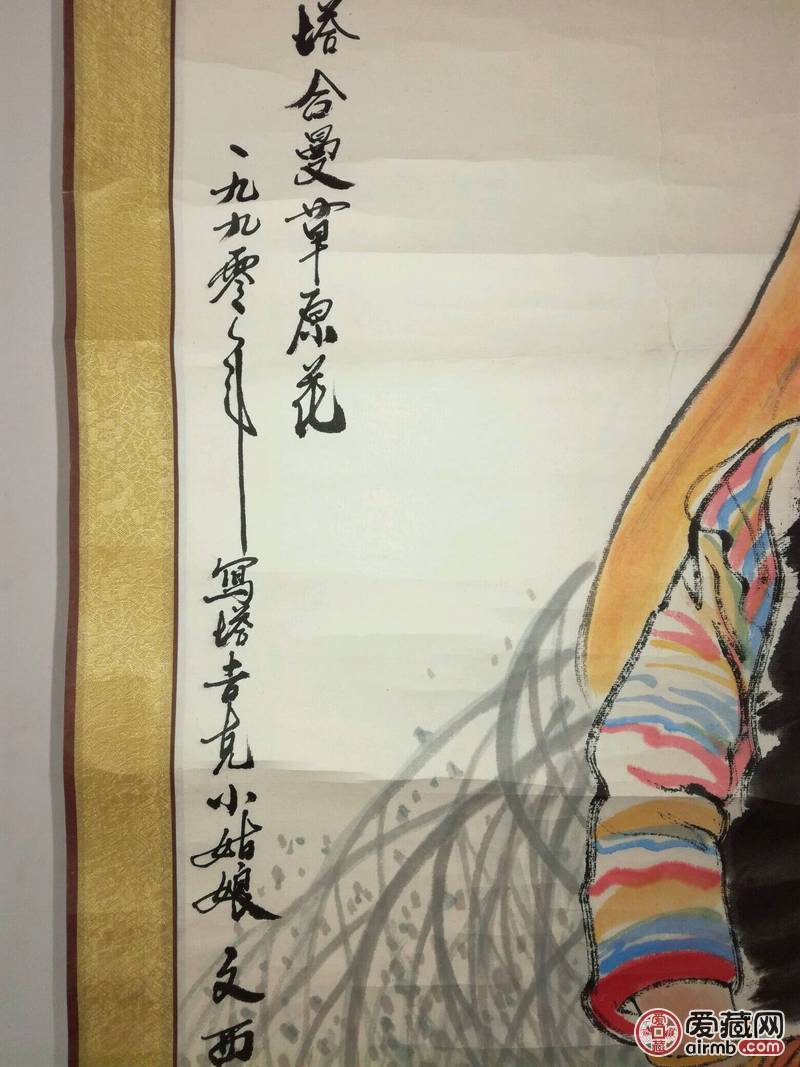 塔合曼草原花
一九九零年
寫塔吉克小姑娘 文西
爱藏网
airmb.com